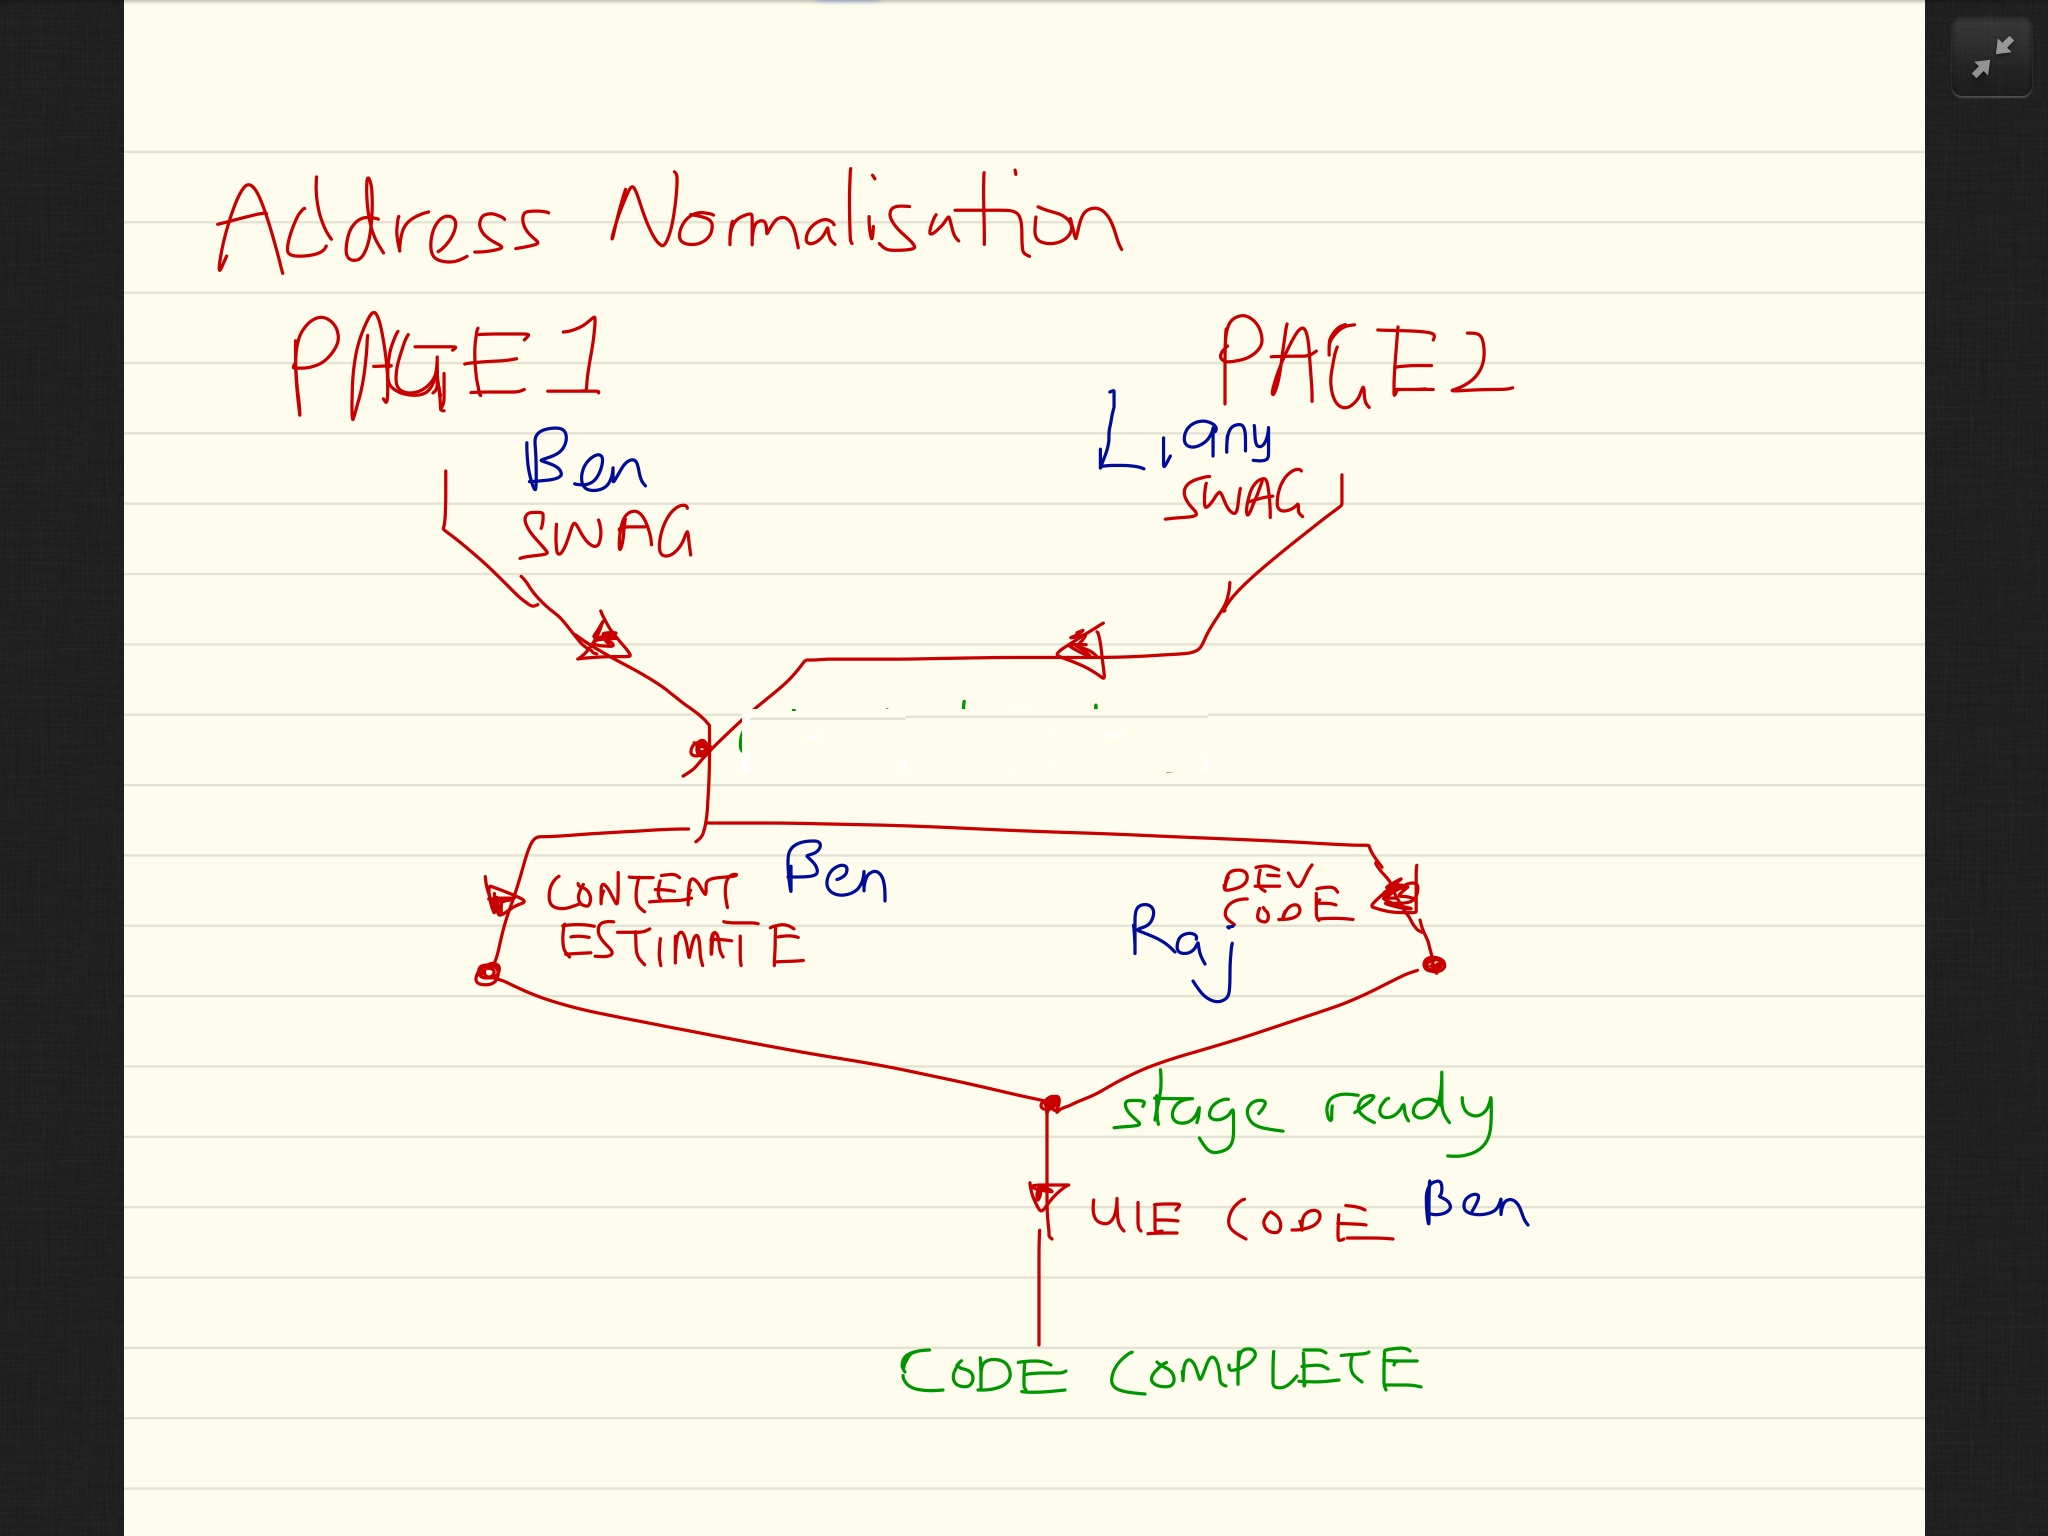 Address Normalisation
PAGE1 PAGE2
Ben
SWAG
Liany
SWAG
CONTENT
ESTIMATE
Ben
DEV
CODE
Raj
stage ready
UIE CODE Ben
CODE COMPLETE